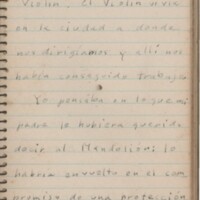 Violín. El Violín vivía
en la ciudad a donde
nos dirigíamos y allí nos
había conseguido trabajo
Yo pensaba en lo que mi
padre le hubiera querido
decir al Mandolión: lo
habían envuelto en el com
promiso de una protección